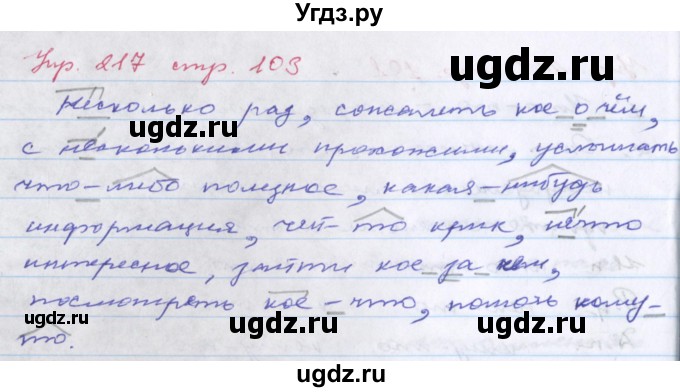 Угдз.ру
Упр. 217 стр. 103
Несколько рад, сожалеть кое о чём,
с несколькими прохожими, услышать
что-либо полезное, какая-нибудь
информация, чей-то крик, нечто
интересное, зайти кое за кем,
посмотреть кое-что, помочь кому-
то.
ugdz.ru
ugdz.ru
ugdz.ru
ugdz.ru
ugdz.ru
ugdz.ru
ugdz.ru
ugdz.ru
ugdz.ru